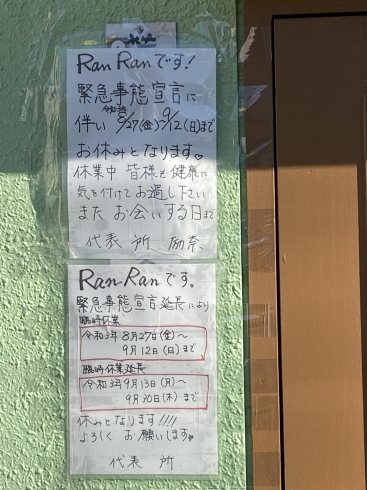 Ran Ranです!
緊急事態宣言に
令和3年
伴い 8/27(金)~9/12(日)まで
お休みとなります。
休業中 皆様も健康に
気を付けてお過し下さい
また お会いする日まで
代表 所
Ran-Ranです。
緊急事態宣言延長により
臨時休業
令和3年 8月27日(金)~
9月12日(日)まで
臨時休業延長
令和3年9月13日(月)~
9月30日(木)まで
休みとなります!!!!
よろしく お願いします
代表 所